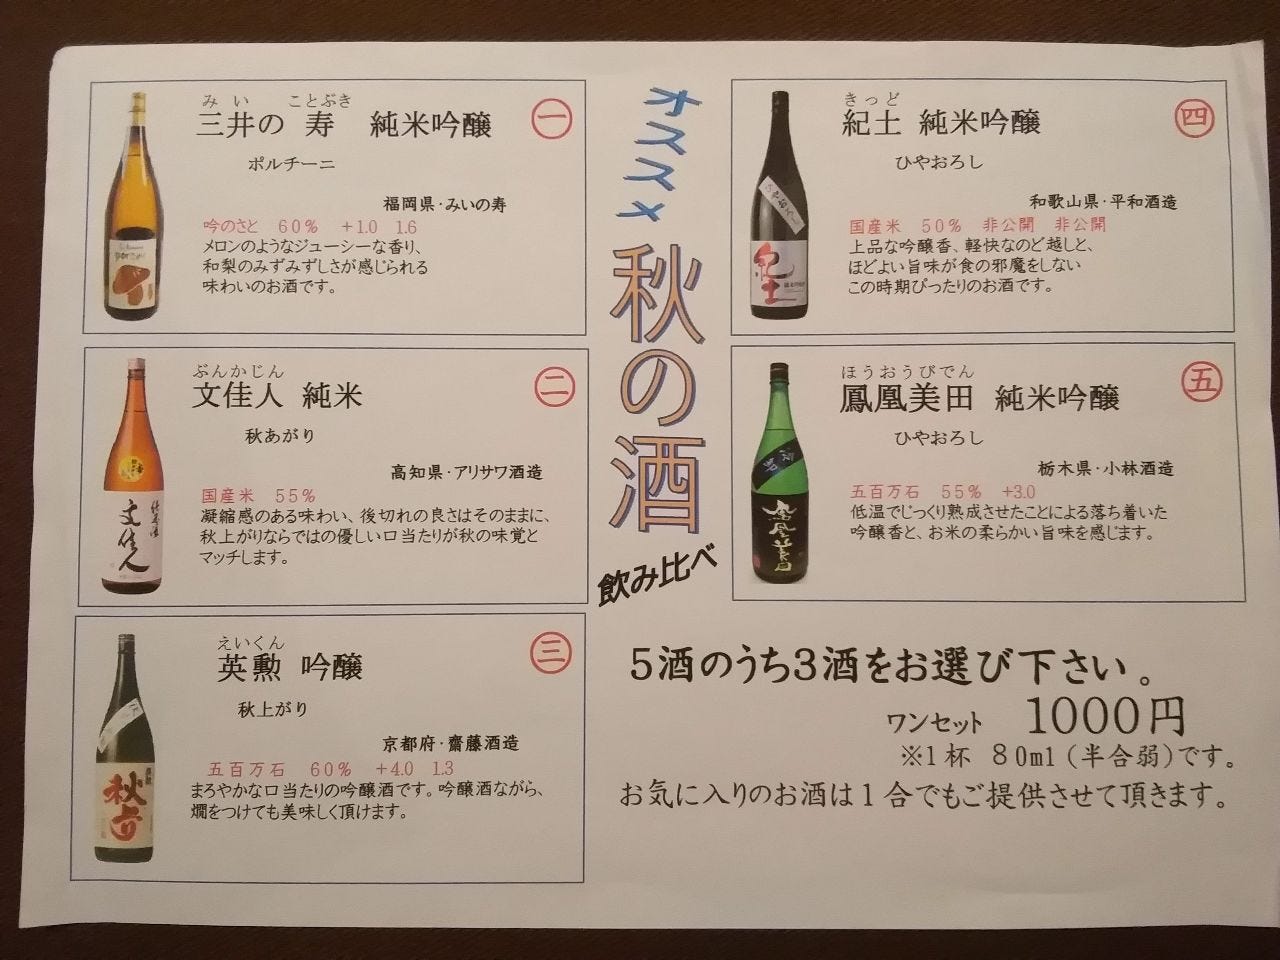 みい　ことぶき
三井の 寿　純米吟醸
一
ポルチーニ
福岡県・みいの寿
吟のさと　60%　+1.0　1.6
メロンのようなジューシーな香り、
和梨のみずみずしさが感じられる
味わいのお酒です。
ぶんかじん
文佳人 純米
二
秋あがり
高知県・アリサワ酒造
国産米　55%
凝縮感のある味わい、後切れの良さはそのままに、
秋上がりならではの優しい口当たりが秋の味覚と
マッチします。
文佳人
えいくん
英勲 吟醸
三
秋上がり
京都府・齋藤酒造
五百万石　60%　+4.0　1.3
まろやかな口当たりの吟醸酒です。吟醸酒ながら、
燗をつけても美味しく頂けます。
秋上り
オススメ
秋の酒
飲み比べ
きっど
紀土 純米吟醸
四
ひやおろし
和歌山県・平和酒造
国産米　50%　非公開　非公開
上品な吟醸香、軽快なのど越しと、
ほどよい旨味が食の邪魔をしない
この時期ぴったりのお酒です。
ひやおろし
紀土
ほうおうびでん
鳳凰美田 純米吟醸
五
ひやおろし
栃木県・小林酒造
五百万石　55%　+3.0
低温でじっくり熟成させたことによる落ち着いた
吟醸香と、お米の柔らかい旨味を感じます。
鳳凰美田
5酒のうち3酒をお選び下さい。
ワンセット　1000円
※1杯 80ml（半合弱）です。
お気に入りのお酒は1合でもご提供させて頂きます。